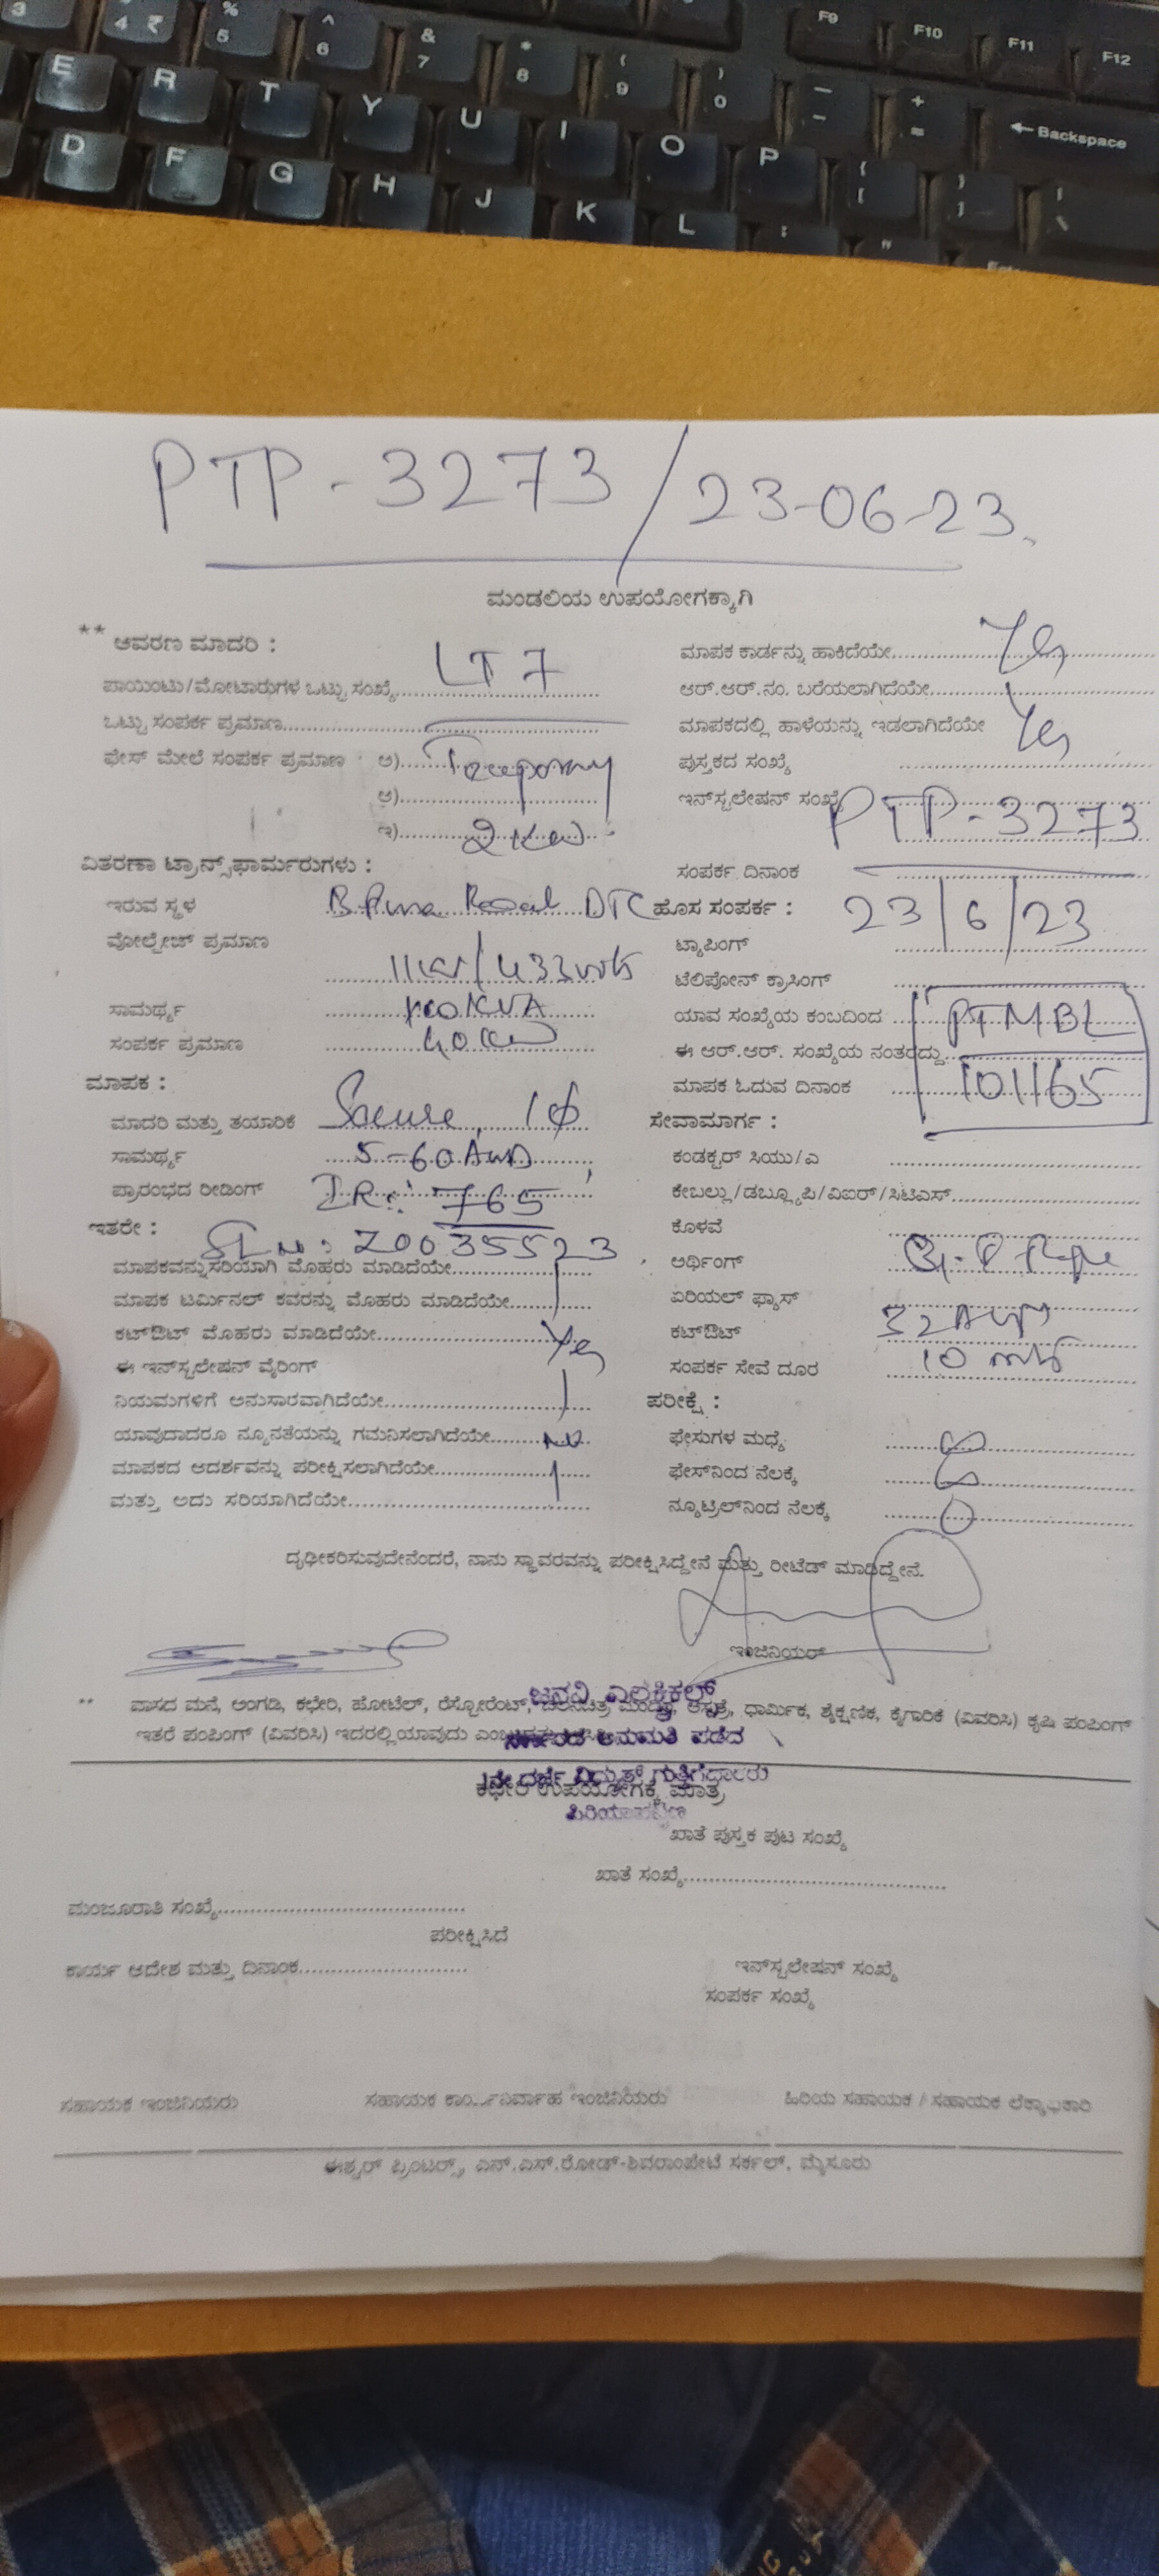 3
4 ₹
% 5
^ 6
& 7
* 8
( 9
) 0
_ -
+ =
← Backspace
F9
F10
F11
F12
E R T Y U I O P { [ } ]
D F G H J K L : ; "
PTP - 3273 / 23-06-23
ಮಂಡಲಿಯ ಉಪಯೋಗಕ್ಕಾಗಿ
** ಆವರಣ ಮಾದರಿ : LT 7
ಪಾಯಿಂಟು/ಮೋಟಾರುಗಳ ಒಟ್ಟು ಸಂಖ್ಯೆ
ಒಟ್ಟು ಸಂಪರ್ಕ ಪ್ರಮಾಣ
ಫೇಸ್ ಮೇಲೆ ಸಂಪರ್ಕ ಪ್ರಮಾಣ ಅ)
ಆ)
ಇ) 2 KW
ವಿತರಣಾ ಟ್ರಾನ್ಸ್‌ಫಾರ್ಮರುಗಳು :
ಇರುವ ಸ್ಥಳ DTC
ವೋಲ್ಟೇಜ್ ಪ್ರಮಾಣ 11KV/433volts
ಸಾಮರ್ಥ್ಯ 100KVA
ಸಂಪರ್ಕ ಪ್ರಮಾಣ 40 KW
ಮಾಪಕ :
ಮಾದರಿ ಮತ್ತು ತಯಾರಿಕೆ Secure, 1φ
ಸಾಮರ್ಥ್ಯ 5-60 Amp
ಪ್ರಾರಂಭದ ರೀಡಿಂಗ್ IR: 765
ಇತರೇ : SL No: 20035523
ಮಾಪಕವನ್ನು ಸರಿಯಾಗಿ ಮೊಹರು ಮಾಡಿದೆಯೇ
ಮಾಪಕ ಟರ್ಮಿನಲ್ ಕವರನ್ನು ಮೊಹರು ಮಾಡಿದೆಯೇ
ಕಟ್‌ಔಟ್ ಮೊಹರು ಮಾಡಿದೆಯೇ Yes
ಈ ಇನ್‌ಸ್ಟಲೇಷನ್ ವೈರಿಂಗ್
ನಿಯಮಗಳಿಗೆ ಅನುಸಾರವಾಗಿದೆಯೇ
ಯಾವುದಾದರೂ ನ್ಯೂನತೆಯನ್ನು ಗಮನಿಸಲಾಗಿದೆಯೇ No
ಮಾಪಕದ ಆದರ್ಶವನ್ನು ಪರೀಕ್ಷಿಸಲಾಗಿದೆಯೇ
ಮತ್ತು ಅದು ಸರಿಯಾಗಿದೆಯೇ
ಮಾಪಕ ಕಾರ್ಡನ್ನು ಹಾಕಿದೆಯೇ Yes
ಆರ್.ಆರ್.ನಂ. ಬರೆಯಲಾಗಿದೆಯೇ
ಮಾಪಕದಲ್ಲಿ ಹಾಳೆಯನ್ನು ಇಡಲಾಗಿದೆಯೇ Yes
ಪುಸ್ತಕದ ಸಂಖ್ಯೆ
ಇನ್‌ಸ್ಟಲೇಷನ್ ಸಂಖ್ಯೆ PTP-3273
ಸಂಪರ್ಕ ದಿನಾಂಕ
ಹೊಸ ಸಂಪರ್ಕ : 23/6/23
ಟ್ಯಾಪಿಂಗ್
ಟೆಲಿಫೋನ್ ಕ್ರಾಸಿಂಗ್
ಯಾವ ಸಂಖ್ಯೆಯ ಕಂಬದಿಂದ PTMBL
ಈ ಆರ್.ಆರ್. ಸಂಖ್ಯೆಯ ನಂತರದ್ದು
ಮಾಪಕ ಓದುವ ದಿನಾಂಕ 101165
ಸೇವಾಮಾರ್ಗ :
ಕಂಡಕ್ಟರ್ ಸಿಯು/ಎ
ಕೇಬಲ್ಲು/ಡಬ್ಲ್ಯೂಪಿ/ವಿಐರ್/ಸಿಟಿಎಸ್
ಕೊಳವೆ
ಅರ್ಥಿಂಗ್ G.I Pipe
ಏರಿಯಲ್ ಫ್ಯೂಸ್
ಕಟ್‌ಔಟ್ 32 Amp
ಸಂಪರ್ಕ ಸೇವೆ ದೂರ 10 mts
ಪರೀಕ್ಷೆ :
ಫೇಸುಗಳ ಮಧ್ಯೆ
ಫೇಸ್‌ನಿಂದ ನೆಲಕ್ಕೆ
ನ್ಯೂಟ್ರಲ್‌ನಿಂದ ನೆಲಕ್ಕೆ
ದೃಢೀಕರಿಸುವುದೇನೆಂದರೆ, ನಾನು ಸ್ಥಾವರವನ್ನು ಪರೀಕ್ಷಿಸಿದ್ದೇನೆ ಮತ್ತು ರೀಟೆಡ್ ಮಾಡಿದ್ದೇನೆ.
ಇಂಜಿನಿಯರ್
** ವಾಸದ ಮನೆ, ಅಂಗಡಿ, ಕಛೇರಿ, ಹೋಟೆಲ್, ರೆಸ್ಟೋರೆಂಟ್, ಆಸ್ಪತ್ರೆ, ಧಾರ್ಮಿಕ, ಶೈಕ್ಷಣಿಕ, ಕೈಗಾರಿಕೆ (ವಿವರಿಸಿ) ಕೃಷಿ ಪಂಪಿಂಗ್
ಇತರೆ ಪಂಪಿಂಗ್ (ವಿವರಿಸಿ) ಇದರಲ್ಲಿ ಯಾವುದು
ಅನುಮತಿ ಪಡೆದ
1ನೇ ದರ್ಜೆ ವಿದ್ಯುತ್ ಗುತ್ತಿಗೆದಾರರು
ಕಛೇರಿ ಉಪಯೋಗಕ್ಕೆ ಮಾತ್ರ
ಪಿರಿಯಾಪಟ್ಟಣ
ಖಾತೆ ಪುಸ್ತಕ ಪುಟ ಸಂಖ್ಯೆ
ಖಾತೆ ಸಂಖ್ಯೆ
ಮಂಜೂರಾತಿ ಸಂಖ್ಯೆ
ಪರೀಕ್ಷಿಸಿದೆ
ಕಾರ್ಯ ಆದೇಶ ಮತ್ತು ದಿನಾಂಕ
ಇನ್‌ಸ್ಟಲೇಷನ್ ಸಂಖ್ಯೆ
ಸಂಪರ್ಕ ಸಂಖ್ಯೆ
ಸಹಾಯಕ ಇಂಜಿನಿಯರು ಸಹಾಯಕ ಕಾರ್ಯನಿರ್ವಾಹ ಇಂಜಿನಿಯರು ಹಿರಿಯ ಸಹಾಯಕ / ಸಹಾಯಕ ಲೆಕ್ಕಾಧಿಕಾರಿ
ಈಶ್ವರ್ ಪ್ರಿಂಟರ್ಸ್, ಎನ್.ಎಸ್.ರೋಡ್-ಶಿವರಾಂಪೇಟೆ ಸರ್ಕಲ್, ಮೈಸೂರು